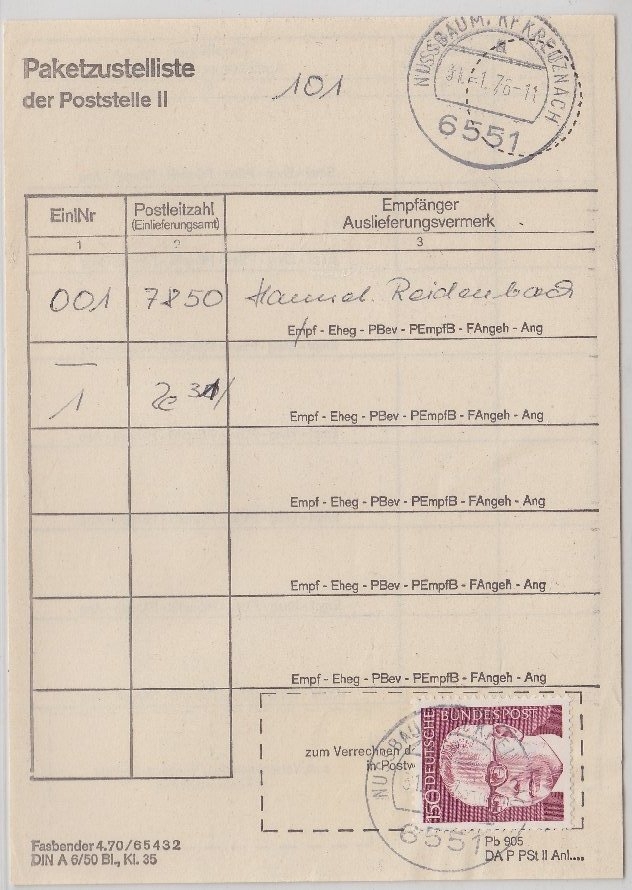 Paketzustelliste
der Poststelle II
101
NUSSBAUM, KR KREUZNACH
31.-1.76-11
6551
EinlNr
Postleitzahl
(Einlieferungsamt)
Empfänger
Auslieferungsvermerk
1
2
3
001 7850 Reidenbach
Empf - Eheg - PBev - PEmpfB - FAngeh - Ang
1
Empf - Eheg - PBev - PEmpfB - FAngeh - Ang
Empf - Eheg - PBev - PEmpfB - FAngeh - Ang
Empf - Eheg - PBev - PEmpfB - FAngeh - Ang
Empf - Eheg - PBev - PEmpfB - FAngeh - Ang
zum Verrechnen
in Postw
DEUTSCHE BUNDESPOST
150
NUSSBAUM
6551
Fasbender 4.70/65432
DIN A 6/50 Bl., Kl. 35
Pb 905
DA P PSt II Anl....